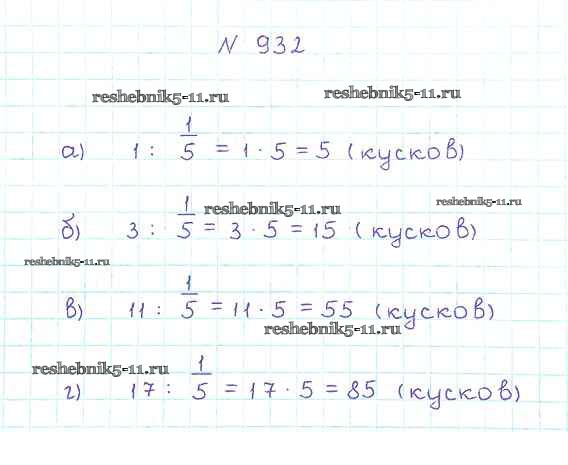 N 932
reshebnik5-11.ru
reshebnik5-11.ru
а) 1 : 1/5 = 1 · 5 = 5 (кусков)
reshebnik5-11.ru
reshebnik5-11.ru
б) 3 : 1/5 = 3 · 5 = 15 (кусков)
reshebnik5-11.ru
в) 11 : 1/5 = 11 · 5 = 55 (кусков)
reshebnik5-11.ru
reshebnik5-11.ru
г) 17 : 1/5 = 17 · 5 = 85 (кусков)